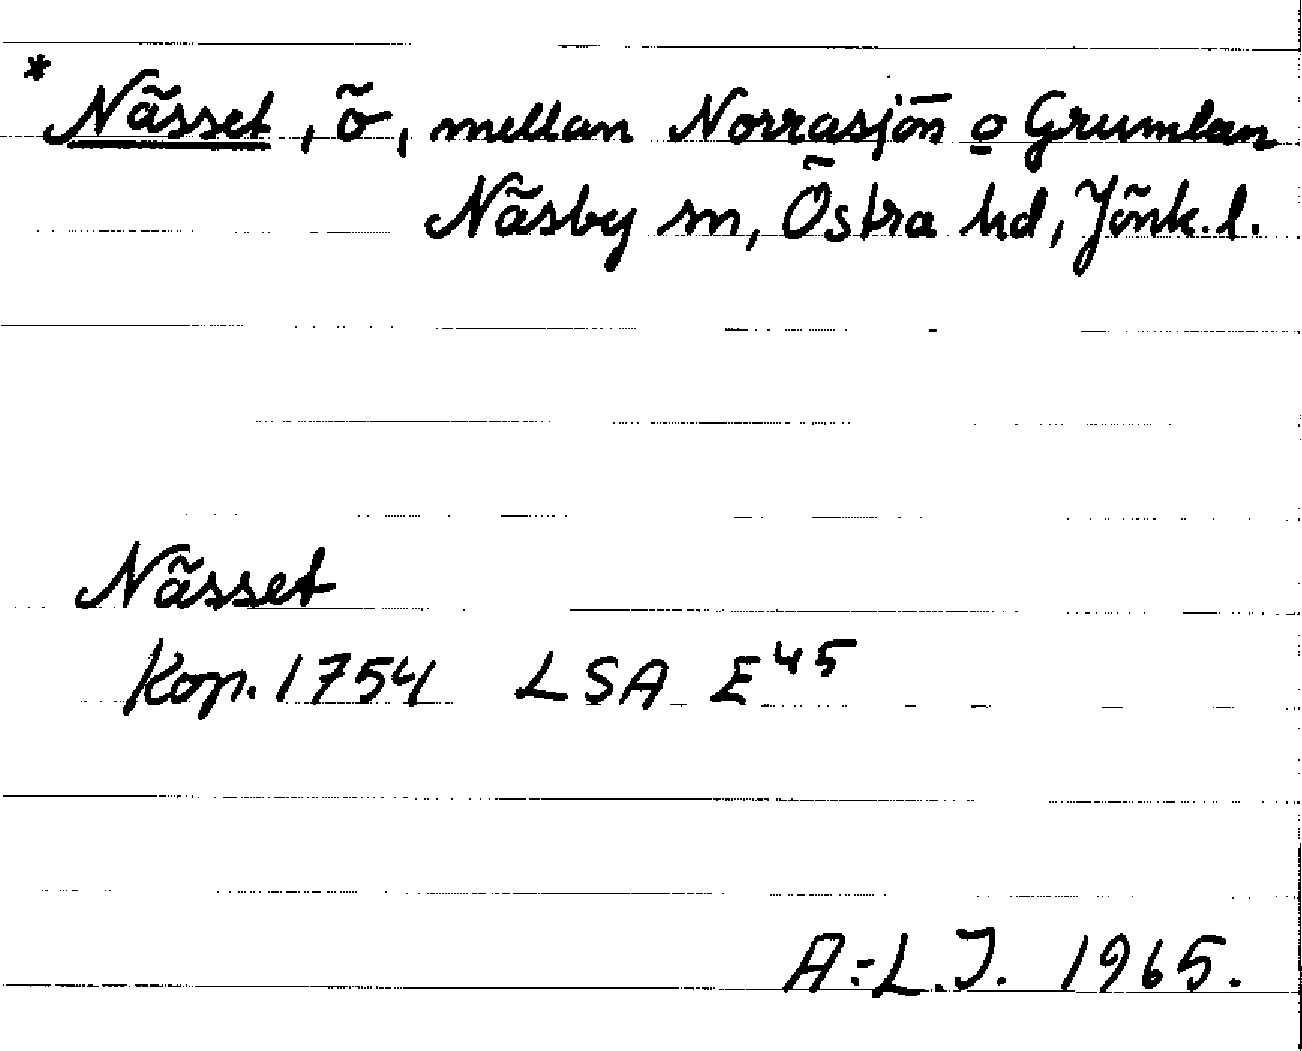 * Nässet, ö, mellan Norrasjön o Grumlan
Näsby sn, Östra hd, Jönk. l.
Nässet
Kop. 1754 LSA E 45
A:L.J. 1965.